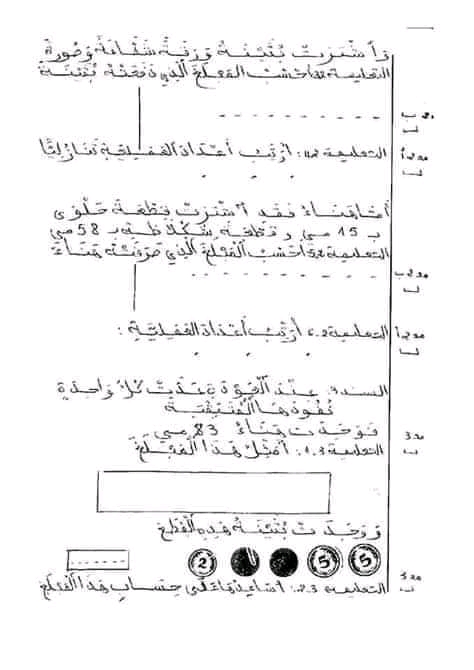 وَٱشْتَرَتْ بُثَيْنَةُ وَرَقَةً شَفَّافَةً وَصُورَةً
التعليمة 1.2: أَحْسُبُ المَبْلَغَ الَّذِي دَفَعَتْهُ بُثَيْنَةُ
التعليمة 2.1: أُرَتِّبُ أَعْدَادَ العَمَلِيَّةِ تَنَازُلِيًّا
أَمَّا هَنَاءُ فَقَدِ ٱشْتَرَتْ قِطْعَةَ حَلْوَى
بـ 15 مي وَقِطْعَةَ شُكْلَاطَةٍ بـ 58 مي
التعليمة أَحْسُبُ المَبْلَغَ الَّذِي صَرَفَتْهُ هَنَاءُ
التعليمة 2.2 أُرَتِّبُ أَعْدَادَ العَمَلِيَّةِ:
السند 3: عِنْدَ العَوْدَةِ عَدَّتْ كُلُّ وَاحِدَةٍ
نُقُودَهَا المُتَبَقِّيَةَ
فَوَجَدَتْ هَنَاءُ 83 مي
التعليمة 1.3: أُمَثِّلُ هَذَا المَبْلَغَ
وَوَجَدَتْ بُثَيْنَةُ هَذِهِ القِطَعَ
2 5 5
التعليمة 2.3: أُسَاعِدُهَا عَلَى حِسَابِ هَذَا المَبْلَغِ